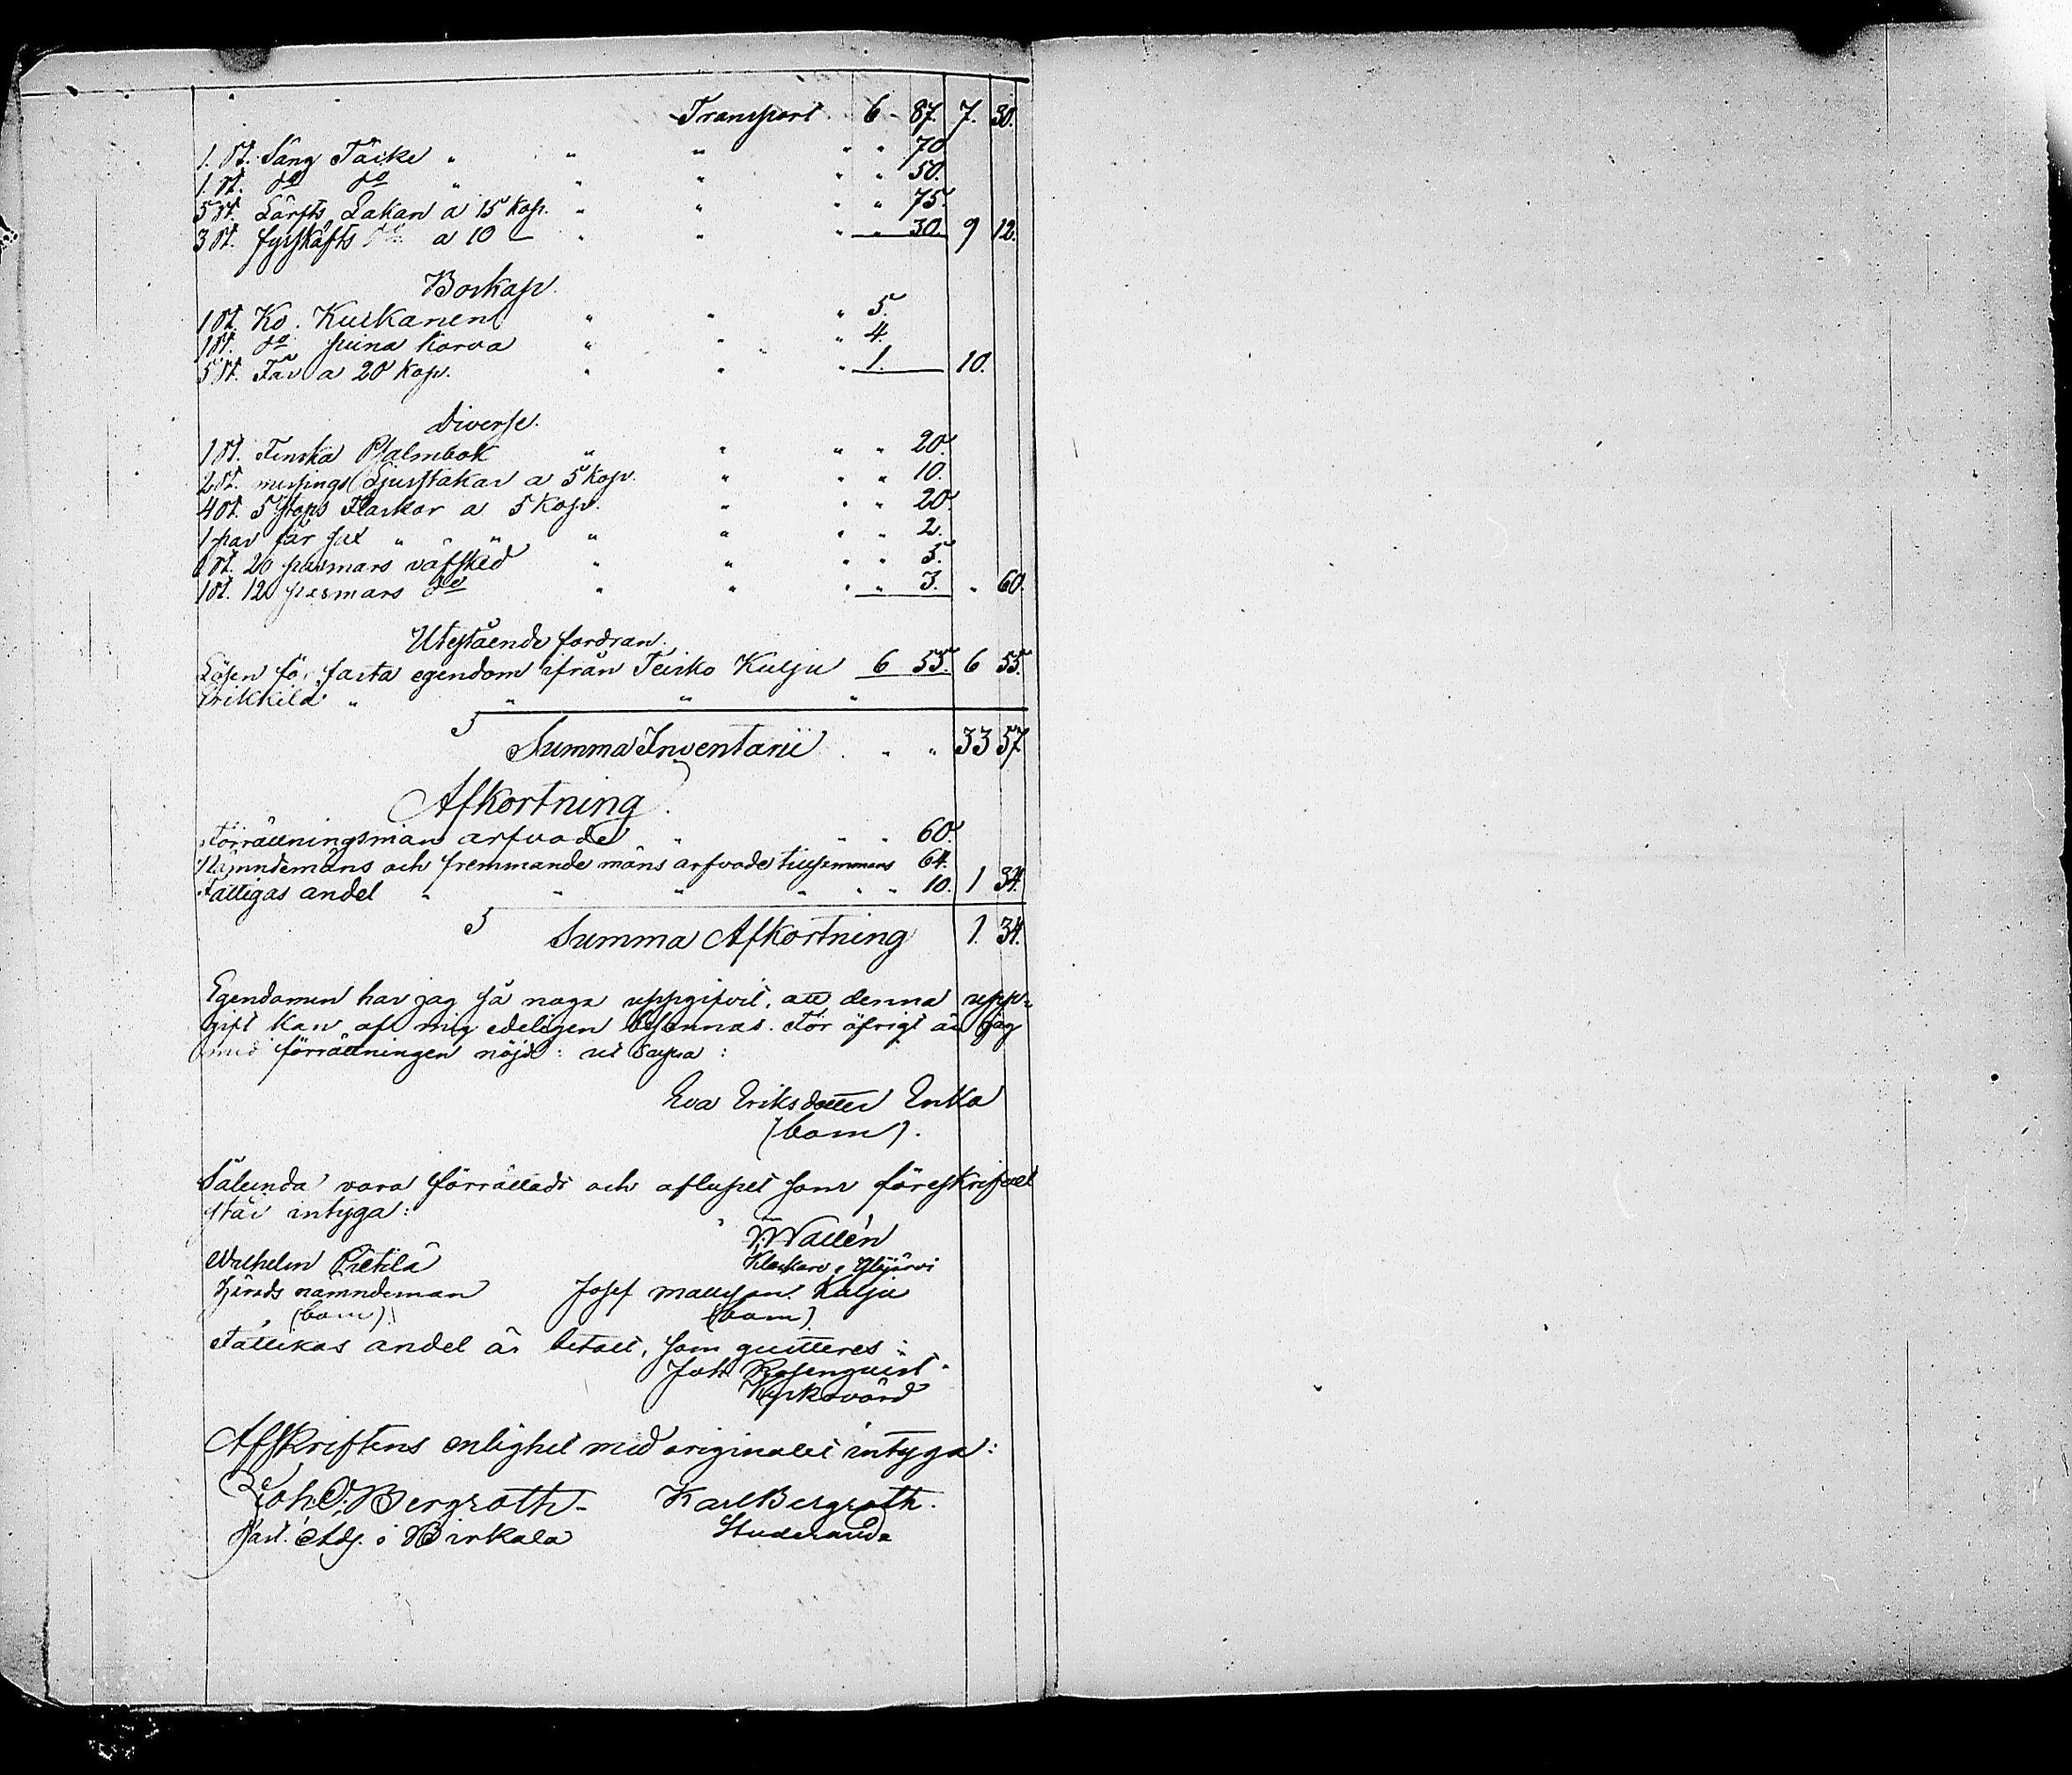 Transport 6 87. 7. 30.
1. st. Säng Täcke " " " " " 70.
1 st. do do " " " " " 50.
5 st. Lärfts Lakan a 15 Kop. " " " " 75.
3 st. fyrskäfts do a 10 — " " " " 30. 9 12.
Boskap.
1 st. Ko. Kuskanen " " " 5.
1 st. do puna korva " " " 4.
5 st. Får a 20 Kop. " " " 1. 10.
Diverse.
1 st. Finska Psalmbok " " " " 20.
2 st. messings Ljusstakar a 5 Kop. " " " 10.
4 st. 5 stops Flaskor a 5 Kop. " " " 20.
1 par får sax " " " " " " 2.
1 st. 20 pasmars väfsked " " " " 5.
1 st. 12 pasmars do " " " " 3. " 60.
Utestående fordran.
Lösen för fasta egendom ifrån Teisko Kulju 6 55. 6 55.
Erikkilä " " " "
Summa Inventarii " " 33 57
Afkortning.
Förrättningsman arfvode " " " 60.
Nämndemäns och fremmande mäns arfvode tillsammans 64.
Fattigas andel " " " " " " 10. 1 34.
Summa Afkortning 1. 34.
Egendomen har jag så noga uppgifvit, att denna upp-
gift kan af mig edeligen besannas. För öfrigt är jag
med förrättningen nöjd: ut supra:
Eva Eriksdotter Enka
(bom).
Sålunda vara förrättadt och aflupet som föreskrifvet
står intyga:
Wallén
Wilhelm Pietilä Klockare i Ylöjärvi
Härads nämndeman Josef Mattsson Kulju
(bom). (bom)
Fattikas andel är betalt, som quitteres:
Joh. Rosenquist.
Kyrkovärd
Afskriftens enlighet med originalet intyga:
Joh. O. Bergroth. Karl Bergroth.
Past. Adj. i Birkala Studerande